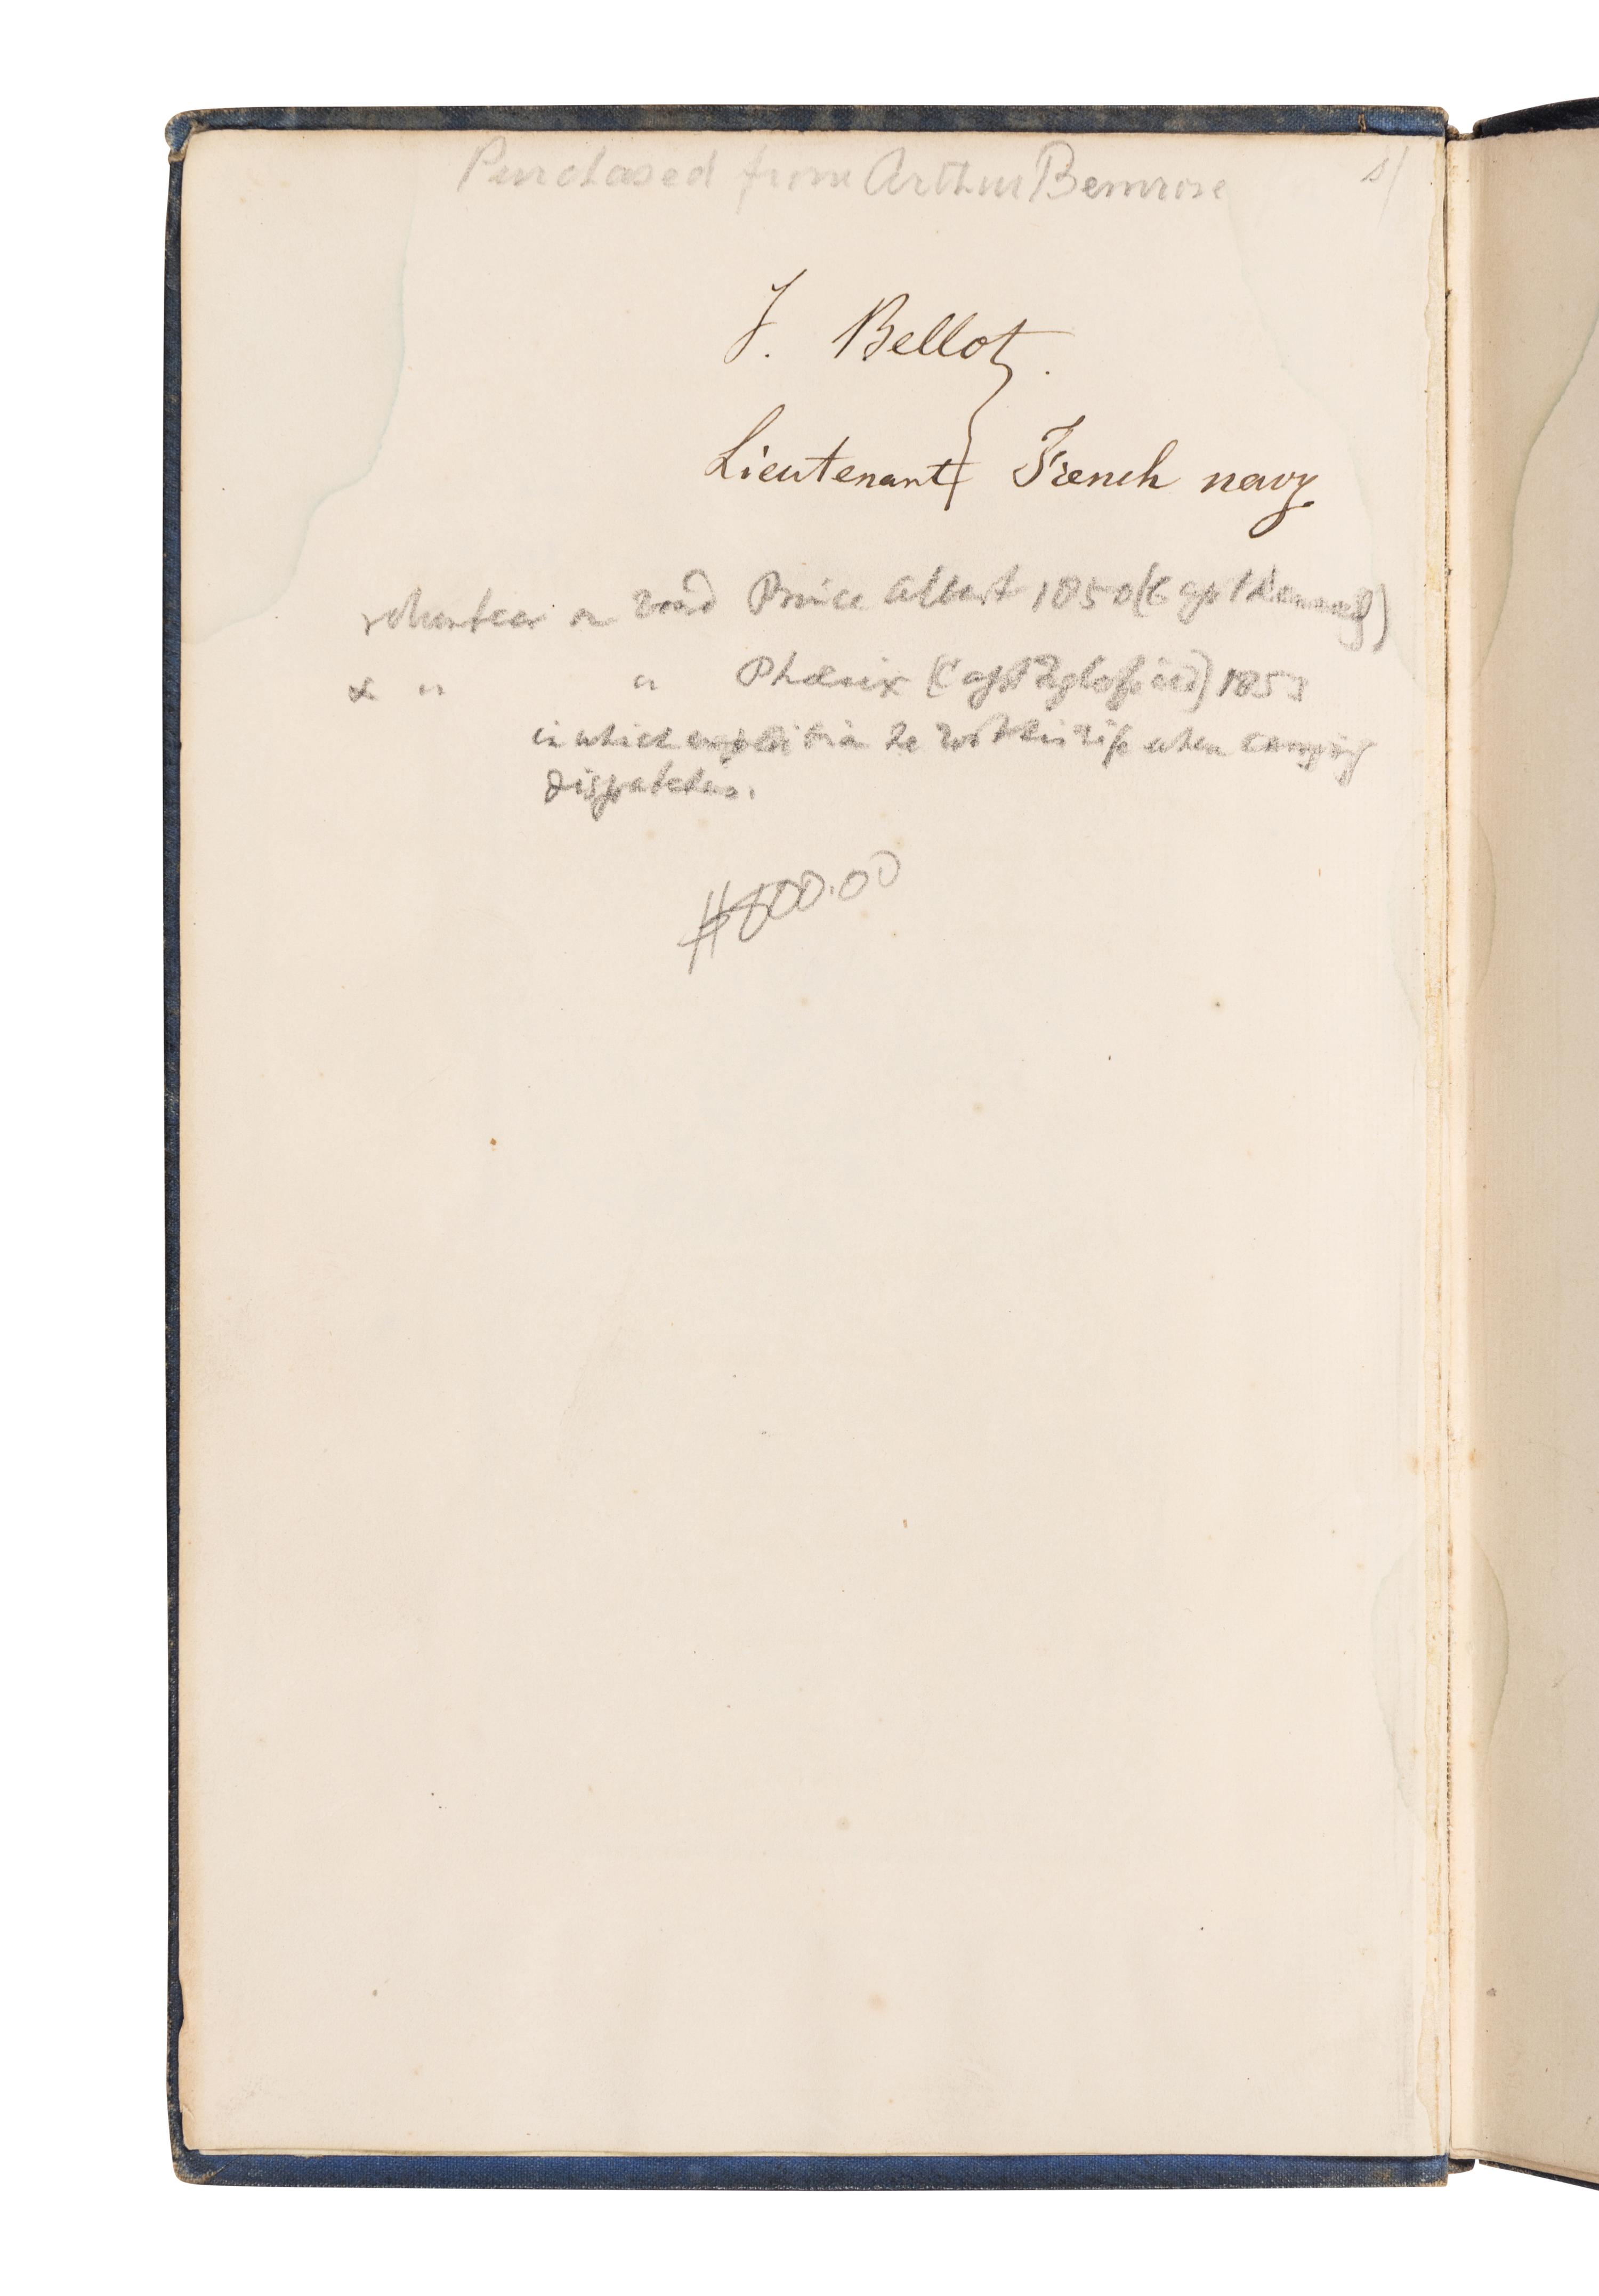 Purchased from Arthur Bemrose
J. Bellot.
Lieutenant French navy
volunteer on board Prince Albert 1850 (Capt Kennedy)
& " " Phœnix (Capt Inglefield) 1853
in which expedition he lost his life when carrying
dispatches.
$800.00